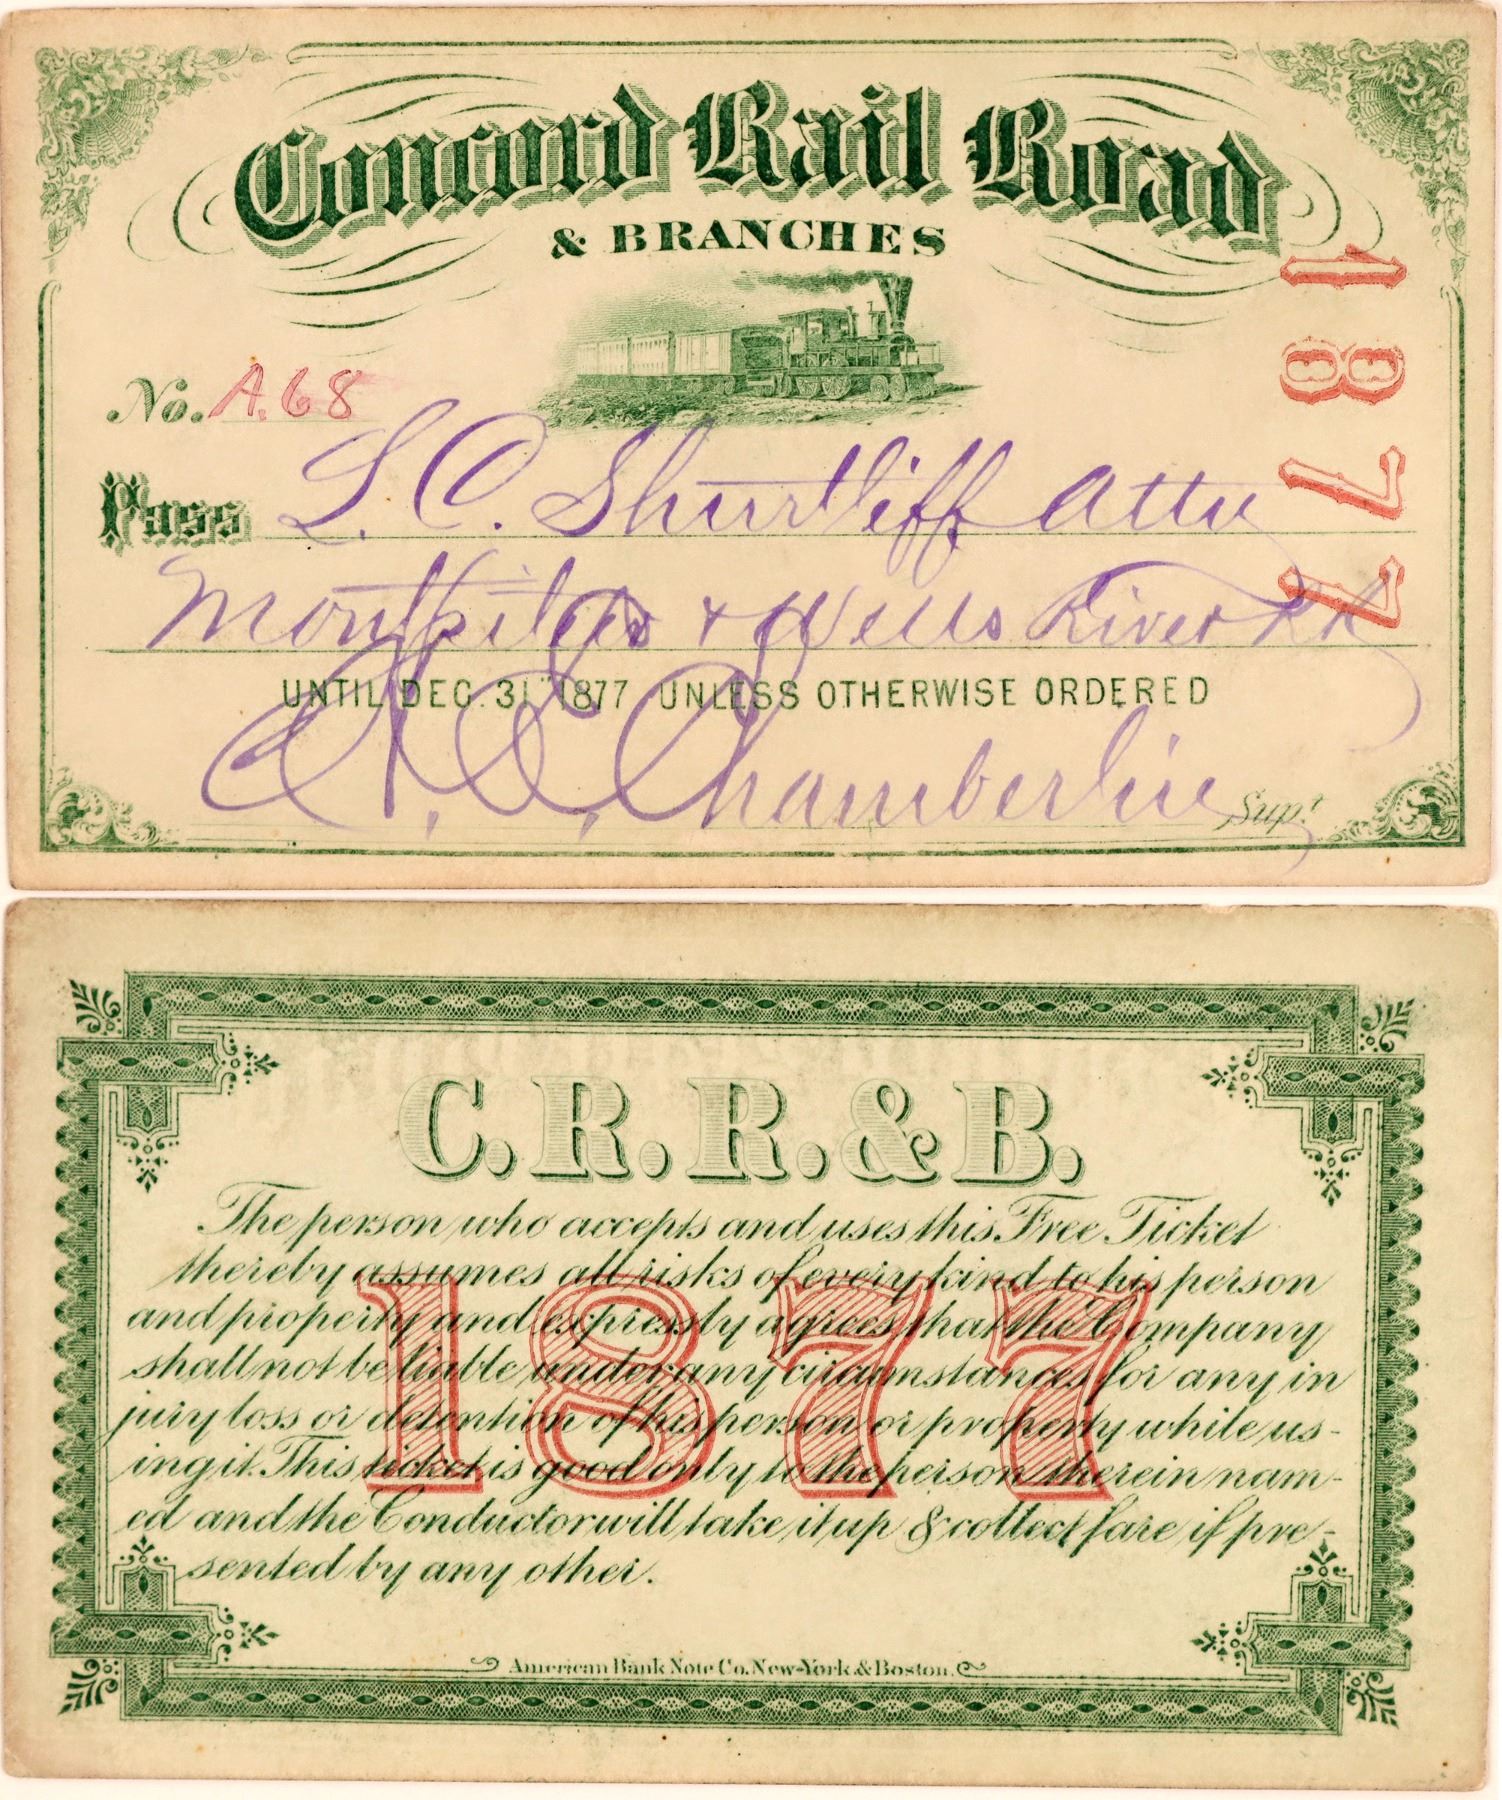 Concord Rail Road
& BRANCHES
1877
No. A.68
Pass S. C. Shurtliff Atty
Montpelier & Wells River RR
UNTIL DEC. 31" 1877 UNLESS OTHERWISE ORDERED
H. E. Chamberlin Supt
C.R.R.&B.
The person who accepts and uses this Free Ticket
thereby assumes all risks of every kind to his person
and property and expressly agrees that the Company
shall not be liable under any circumstances for any in
jury loss or detention of his person or property while us-
ing it. This ticket is good only to the person therein nam-
ed and the Conductor will take it up & collect fare if pre-
sented by any other.
1877
American Bank Note Co. New-York & Boston.